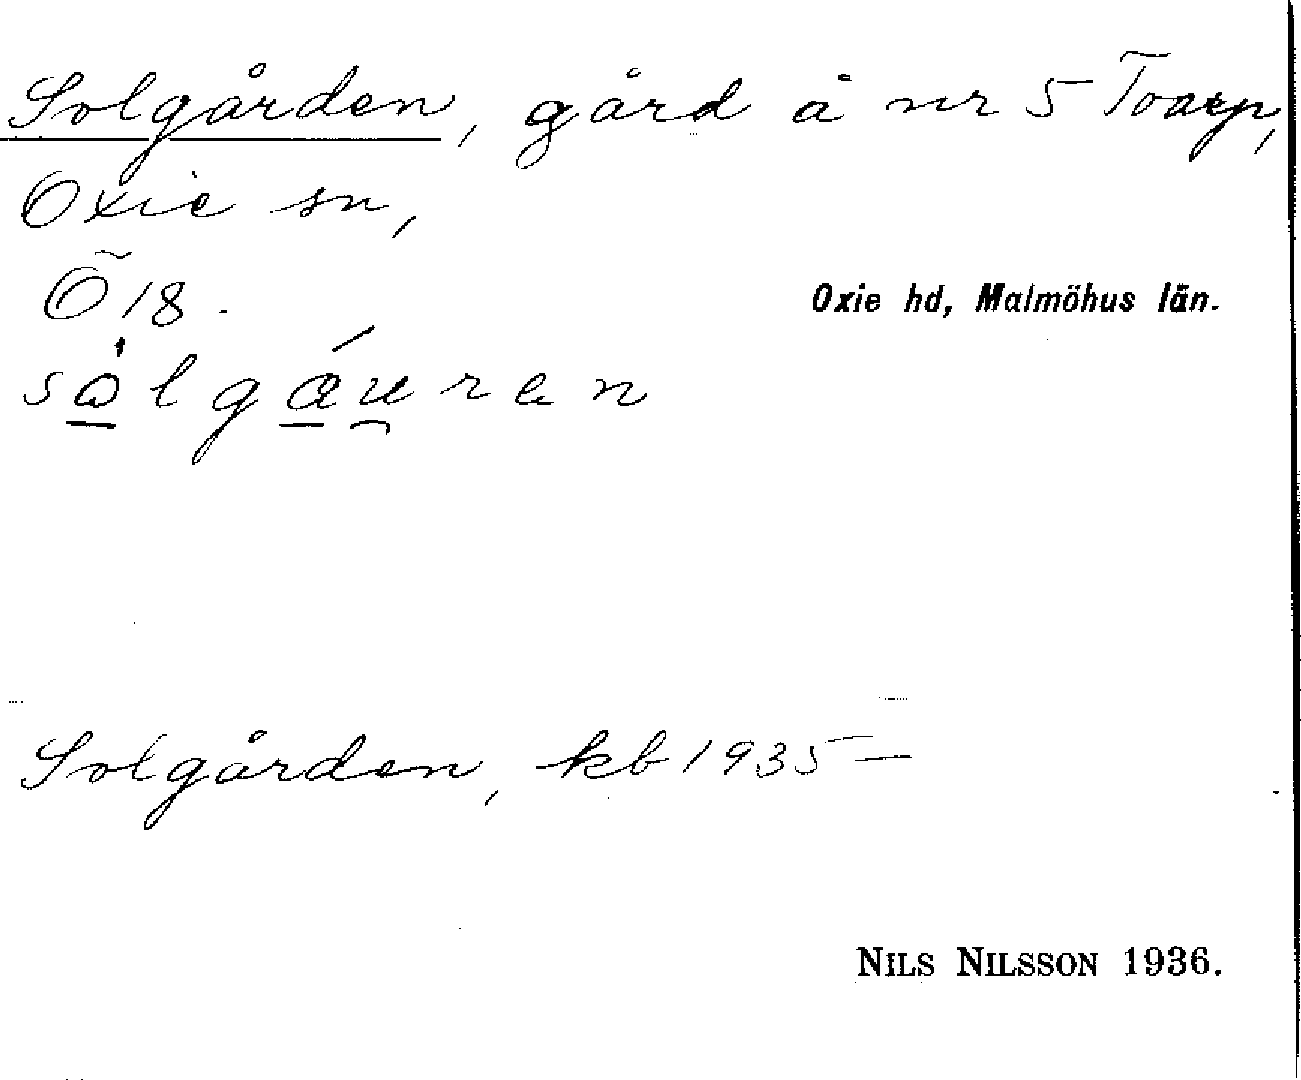 Solgården, gård å nr 5 Toarp,
Oxie sn,
Õ 18.
Oxie hd, Malmöhus län.
Solgården, kb 1935 —
NILS NILSSON 1936.